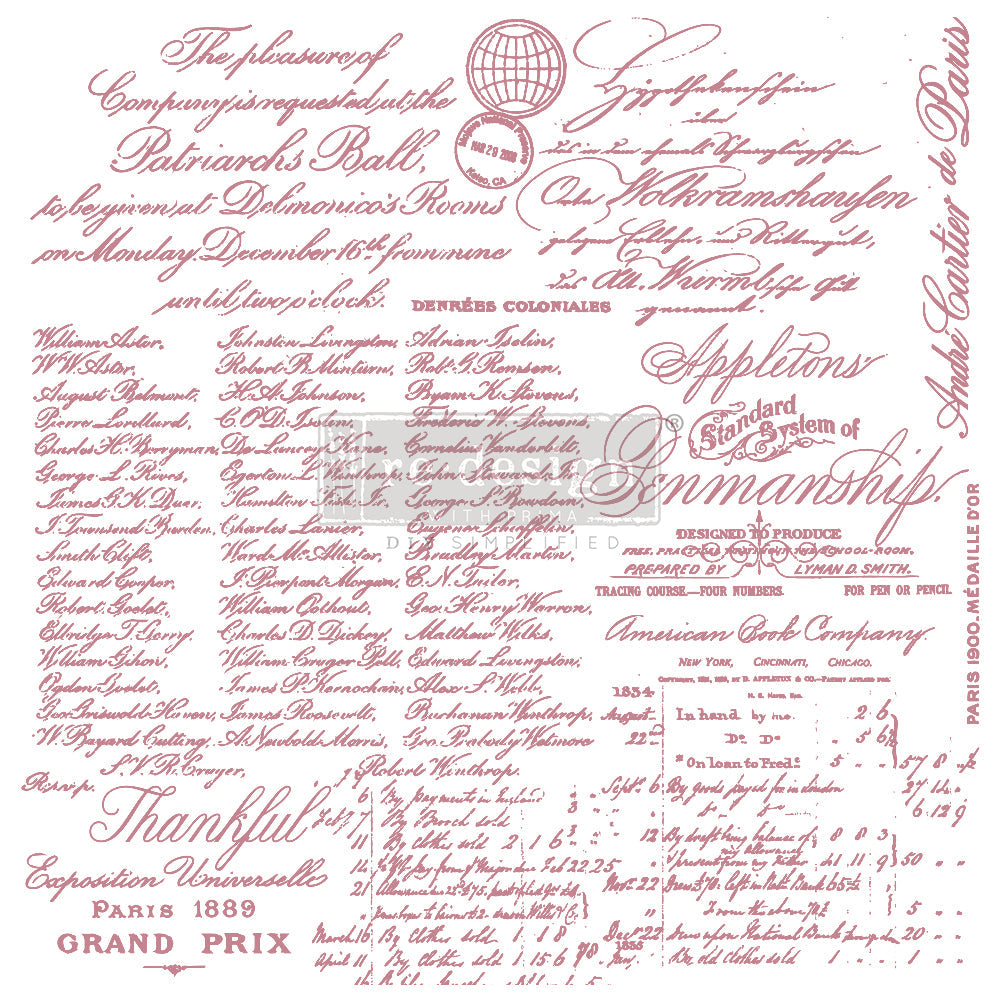 The pleasure of
Company is requested at the
Patriarchs Ball,
to be given at Delmonico's Rooms
on Monday December 16th from nine
until two o'clock.
Mojave National Preserve
MAR 29 2008
Kelso, CA
Hypothekenschein
über
das in dem ehemals Schwarzburgschen
Orte Wolkramshausen
gelegene Erblehn- und Rittergut,
das Alt. Wurmb'sche Gut
genannt.
André Cartier de Paris
DENRÉES COLONIALES
William Astor, Johnston Livingston, Adrian Iselin,
W.W. Astor, Robert B. Minturn, Robt. G. Remsen,
August Belmont, H.A. Johnson, Byam K. Stevens,
Pierre Lorillard, C.O'D. Iselin, Frederic W. Stevens,
Charles H. Berryman, De Lancey Kane, Cornelius Vanderbilt,
George L. Rives, Egerton L. Winthrop,
James G.K. Duer, Hamilton Fish Jr. George S. Bowdoin,
J. Townsend Burden, Charles Lanier, Eugene Schieffelin,
Smith Clift, Ward Mc.Allister, Bradley Martin,
Edward Cooper, J. Pierpont Morgan, E.N. Tailer,
Robert Goelet, William Oothout, Geo. Henry Warren,
Elbridge T. Gerry, Charles D. Dickey, Matthew Wilks,
William Gihon, William Cruger Pell, Edward Livingston,
Ogden Goelet, James P. Kernochan, Alex S. Webb,
Geo. Griswold Haven, James Roosevelt, Buchanan Winthrop,
W. Bayard Cutting, A. Newbold Morris, Geo. Peabody Wetmore
S.V.R. Cruger, Robert Winthrop.
R.s.v.p.
re·design
WITH PRIMA
DIY SIMPLIFIED
®
Appletons'
Standard
System of
Penmanship.
DESIGNED TO PRODUCE
FREE, PRACTICAL WRITING IN THE SCHOOL-ROOM.
PREPARED BY LYMAN D. SMITH.
TRACING COURSE.—FOUR NUMBERS. FOR PEN OR PENCIL
PARIS 1900. MÉDAILLE D'OR
American Book Company.
NEW YORK, CINCINNATI, CHICAGO.
BY D. APPLETON & CO.
1834
August In hand by me. 2 6
22nd Do Do 5 6½
* On loan to Fred: 5 " " 57 8 " ½
Sept. 6 By goods payed for in London 27 14 "
6 12 9
12 By draft being balance of 8 8 3
my allowance
" present from my Father 41 11 9 50 " "
Nov. 22
" 5 " "
Dec 22 20 " "
1835
Jan. By old Clothes sold 1 " "
Thankful
Exposition Universelle
PARIS 1889
GRAND PRIX
6 By payments in England
Feb 7 By Brooch sold
11 By Clothes sold 2 1 6
14 Feb 22, 25
21
March 16 By Clothes sold 1 1 8
April 11 By Clothes sold 1 15 6